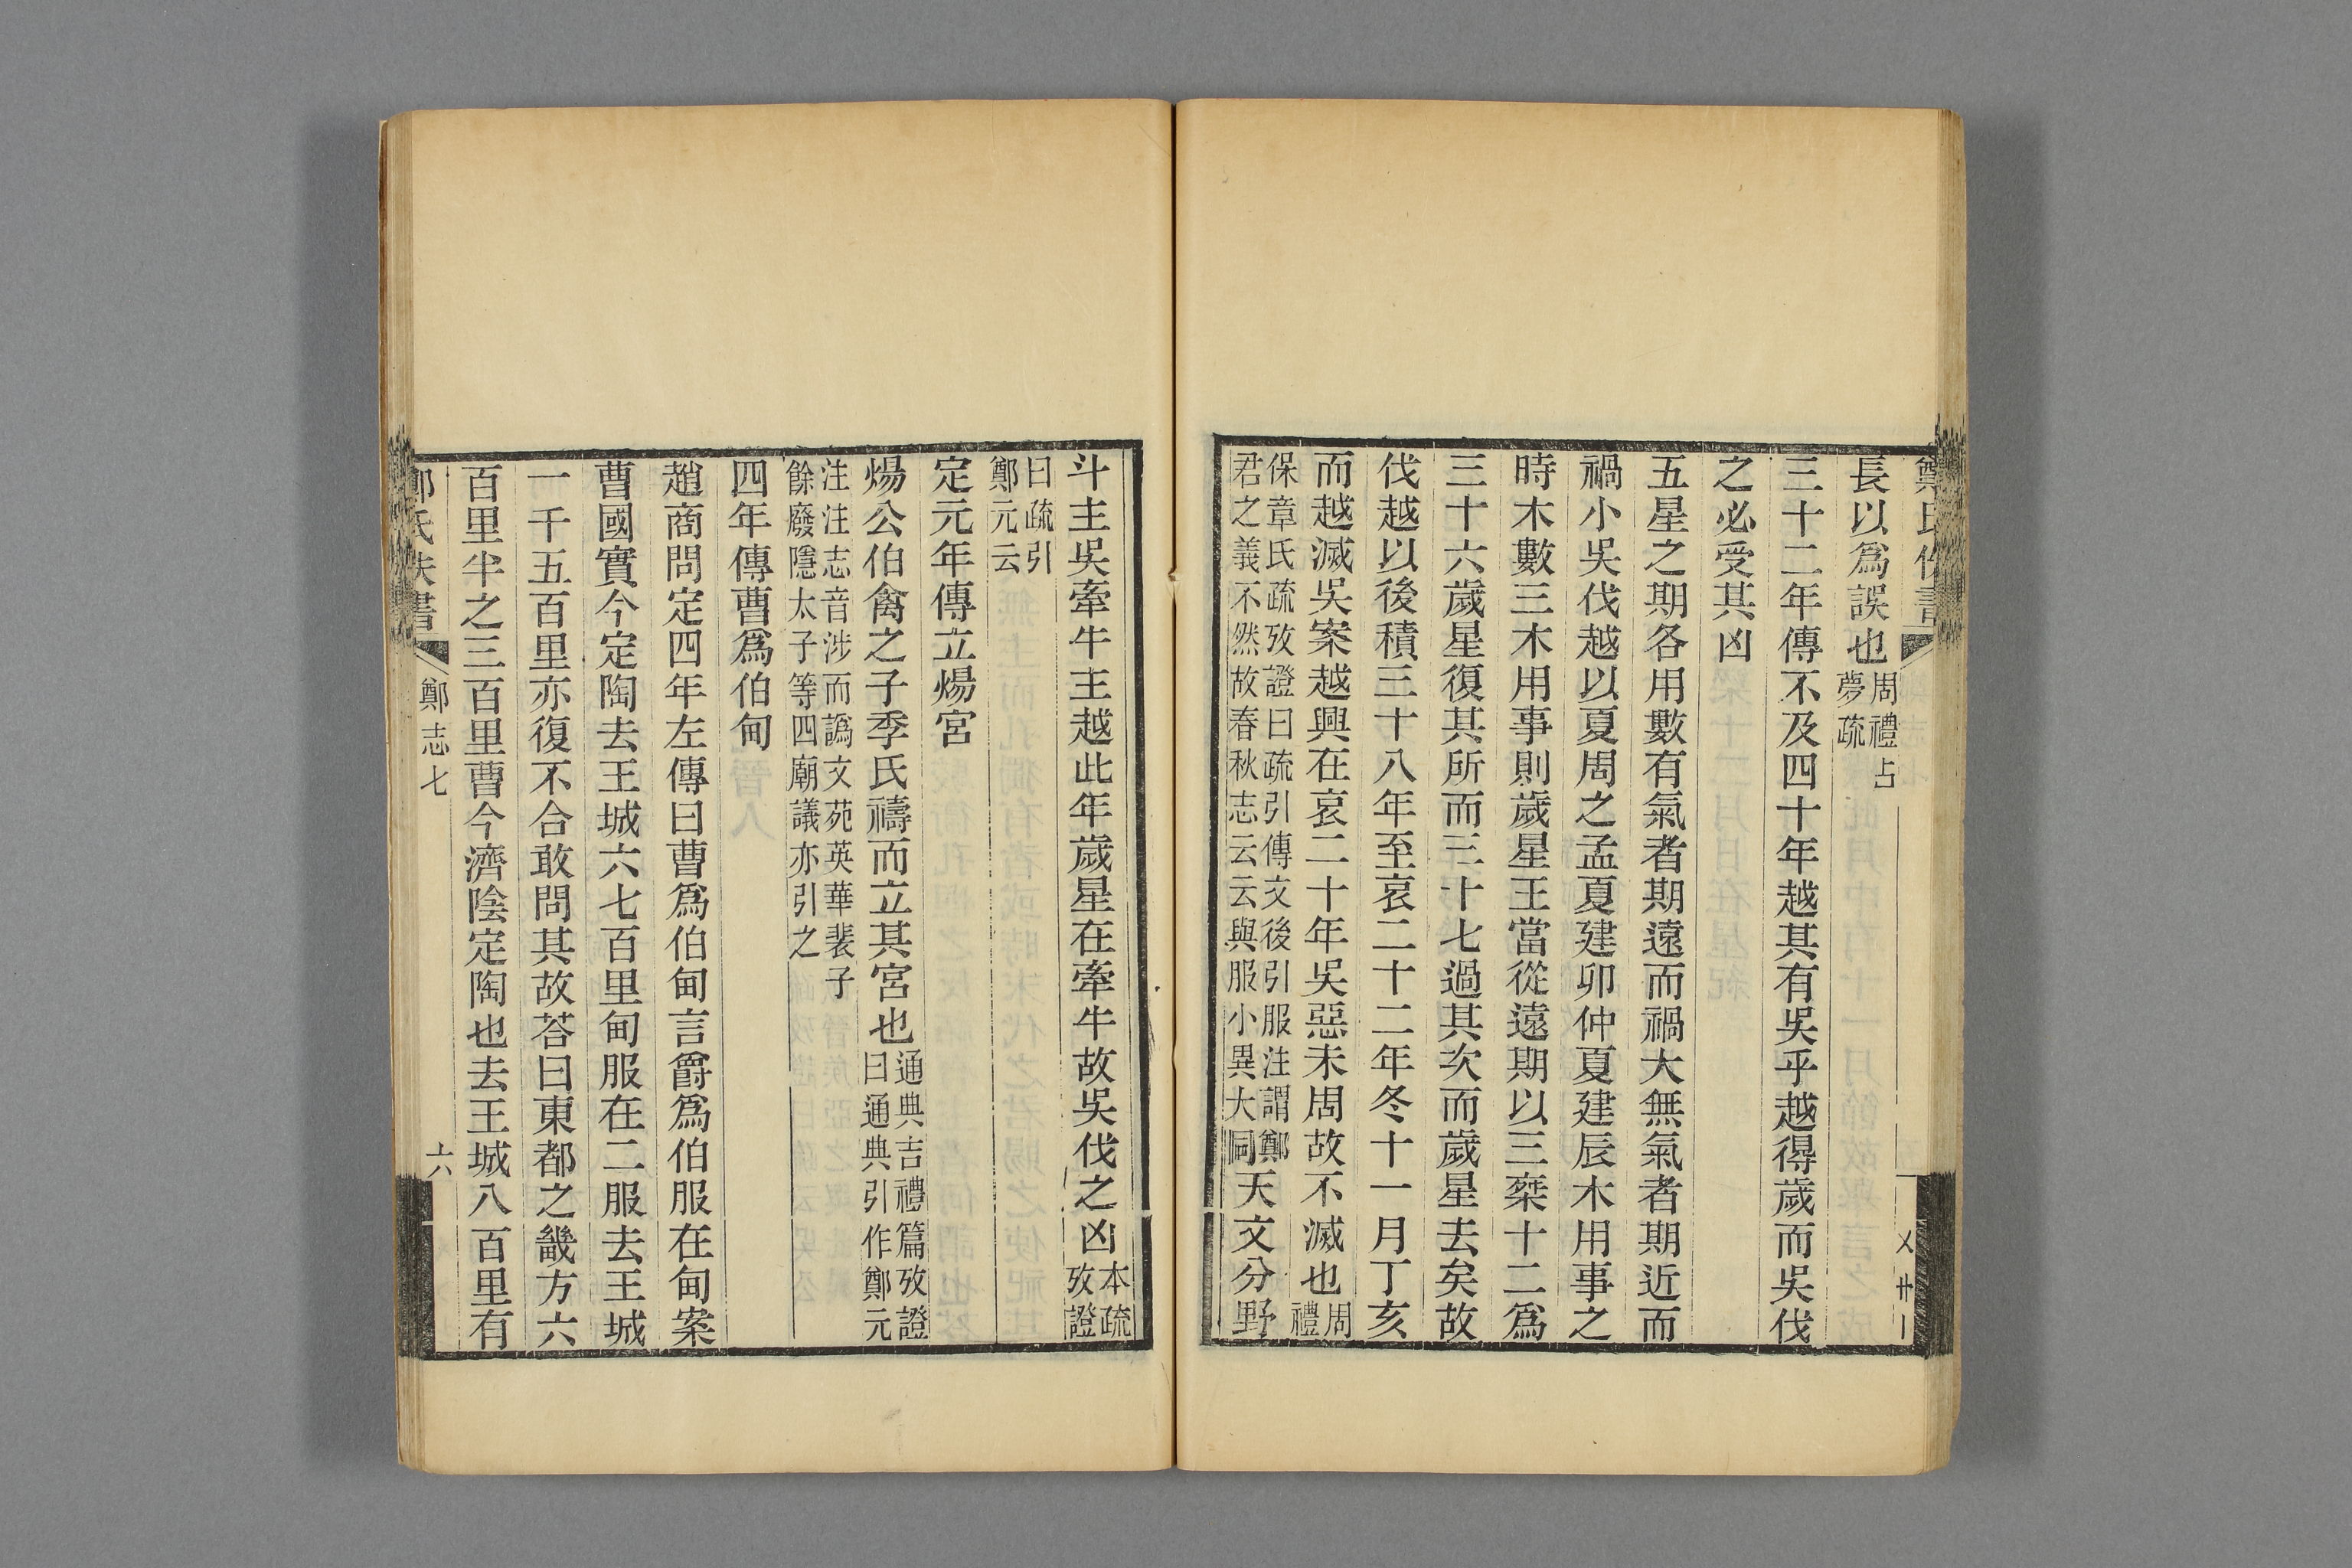 鄭氏佚書
長以爲誤也周禮占夢疏
三十二年傳不及四十年越其有吳乎越得歲而吳伐
之必受其凶
五星之期各用數有氣者期遠而禍大無氣者期近而
禍小吳伐越以夏周之孟夏夏建卯仲夏建辰木用事之
時木數三木用事則歲星王當從遠期以三椉十二爲
三十六歲星復其所而三十七過其次而歲星去矣故
伐越以後積三十八年至哀二十二年冬十一月丁亥
而越滅吳案越興在哀二十年吳惡未周故不滅也周禮
保章氏疏攷證曰疏引傳文後引服注謂鄭
君之義不然故春秋志云云與服小異大同天文分野
斗主吳牽牛主越此年歲星在牽牛故吳伐之凶本疏攷證
曰疏引
鄭元云
定元年傳立煬宮
煬公伯禽之子季氏禱而立其宮也通典吉禮篇攷證曰通典引作鄭元
注注志音涉而譌文苑英華裴子
餘廢隱太子等四廟議亦引之
四年傳曹爲伯甸
趙商問定四年左傳曰曹爲伯甸言爵爲伯服在甸案
曹國實今定陶去王城六七百里甸服在二服去王城
一千五百里亦復不合敢問其故荅曰東都之畿方六
百里半之三百里曹今濟陰定陶也去王城八百里有
鄭氏佚書
鄭志七
六